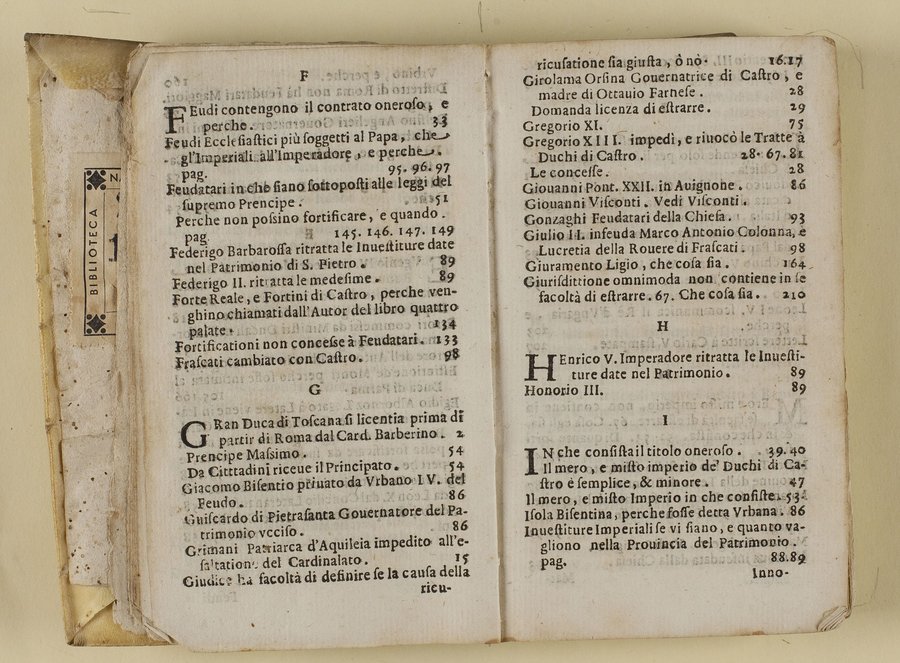 BIBLIOTECA
N.
1
F
FEudi contengono il contrato oneroso, e
perche. 33
Feudi Ecclesiastici più soggetti al Papa, che
gl'Imperiali all'Imperadore, e perche.
pag. 95. 96. 97
Feudatari in che siano sottoposti alle leggi del
supremo Prencipe. 51
Perche non possino fortificare, e quando.
pag. 145. 146. 147. 149
Federigo Barbarossa ritratta le Inuestiture date
nel Patrimonio di S. Pietro. 89
Federigo II. ritratta le medesime. 89
Forte Reale, e Fortini di Castro, perche ven-
ghino chiamati dall'Autor del libro quattro
palate. 134
Fortificationi non concesse à Feudatari. 133
Frascati cambiato con Castro. 98
G
GRan Duca di Toscana si licentia prima di
partir di Roma dal Card. Barberino. 2
Prencipe Massimo. 54
Da Citttadini riceue il Principato. 54
Giacomo Bisentio priuato da Vrbano IV. del
Feudo. 86
Guiscardo di Pietrasanta Gouernatore del Pa-
trimonio vcciso. 86
Grimani Patriarca d'Aquileia impedito all'e-
saltatione del Cardinalato. 15
Giudice ha facoltà di definire se la causa della
ricu-
ricusatione sia giusta, ò nò. 16.17
Girolama Orsina Gouernatrice di Castro, e
madre di Ottauio Farnese. 28
Domanda licenza di estrarre. 29
Gregorio XI. 75
Gregorio XIII. impedì, e riuocò le Tratte à
Duchi di Castro. 28. 67. 81
Le concesse. 28
Giouanni Pont. XXII. in Auignone. 86
Giouanni Visconti. Vedi Visconti.
Gonzaghi Feudatari della Chiesa. 93
Giulio II. infeuda Marco Antonio Colonna, e
Lucretia della Rouere di Frascati. 98
Giuramento Ligio, che cosa sia. 164
Giurisdittione omnimoda non contiene in se
facoltà di estrarre. 67. Che cosa sia. 210
H
HEnrico V. Imperadore ritratta le Inuesti-
ture date nel Patrimonio. 89
Honorio III. 89
I
IN che consista il titolo oneroso. 39. 40
Il mero, e misto imperio de' Duchi di Ca-
stro è semplice, & minore. 47
Il mero, e misto Imperio in che consiste. 53
Isola Bisentina, perche fosse detta Vrbana. 86
Inuestiture Imperiali se vi siano, e quanto va-
gliono nella Prouincia del Patrimonio.
pag. 88.89
Inno-